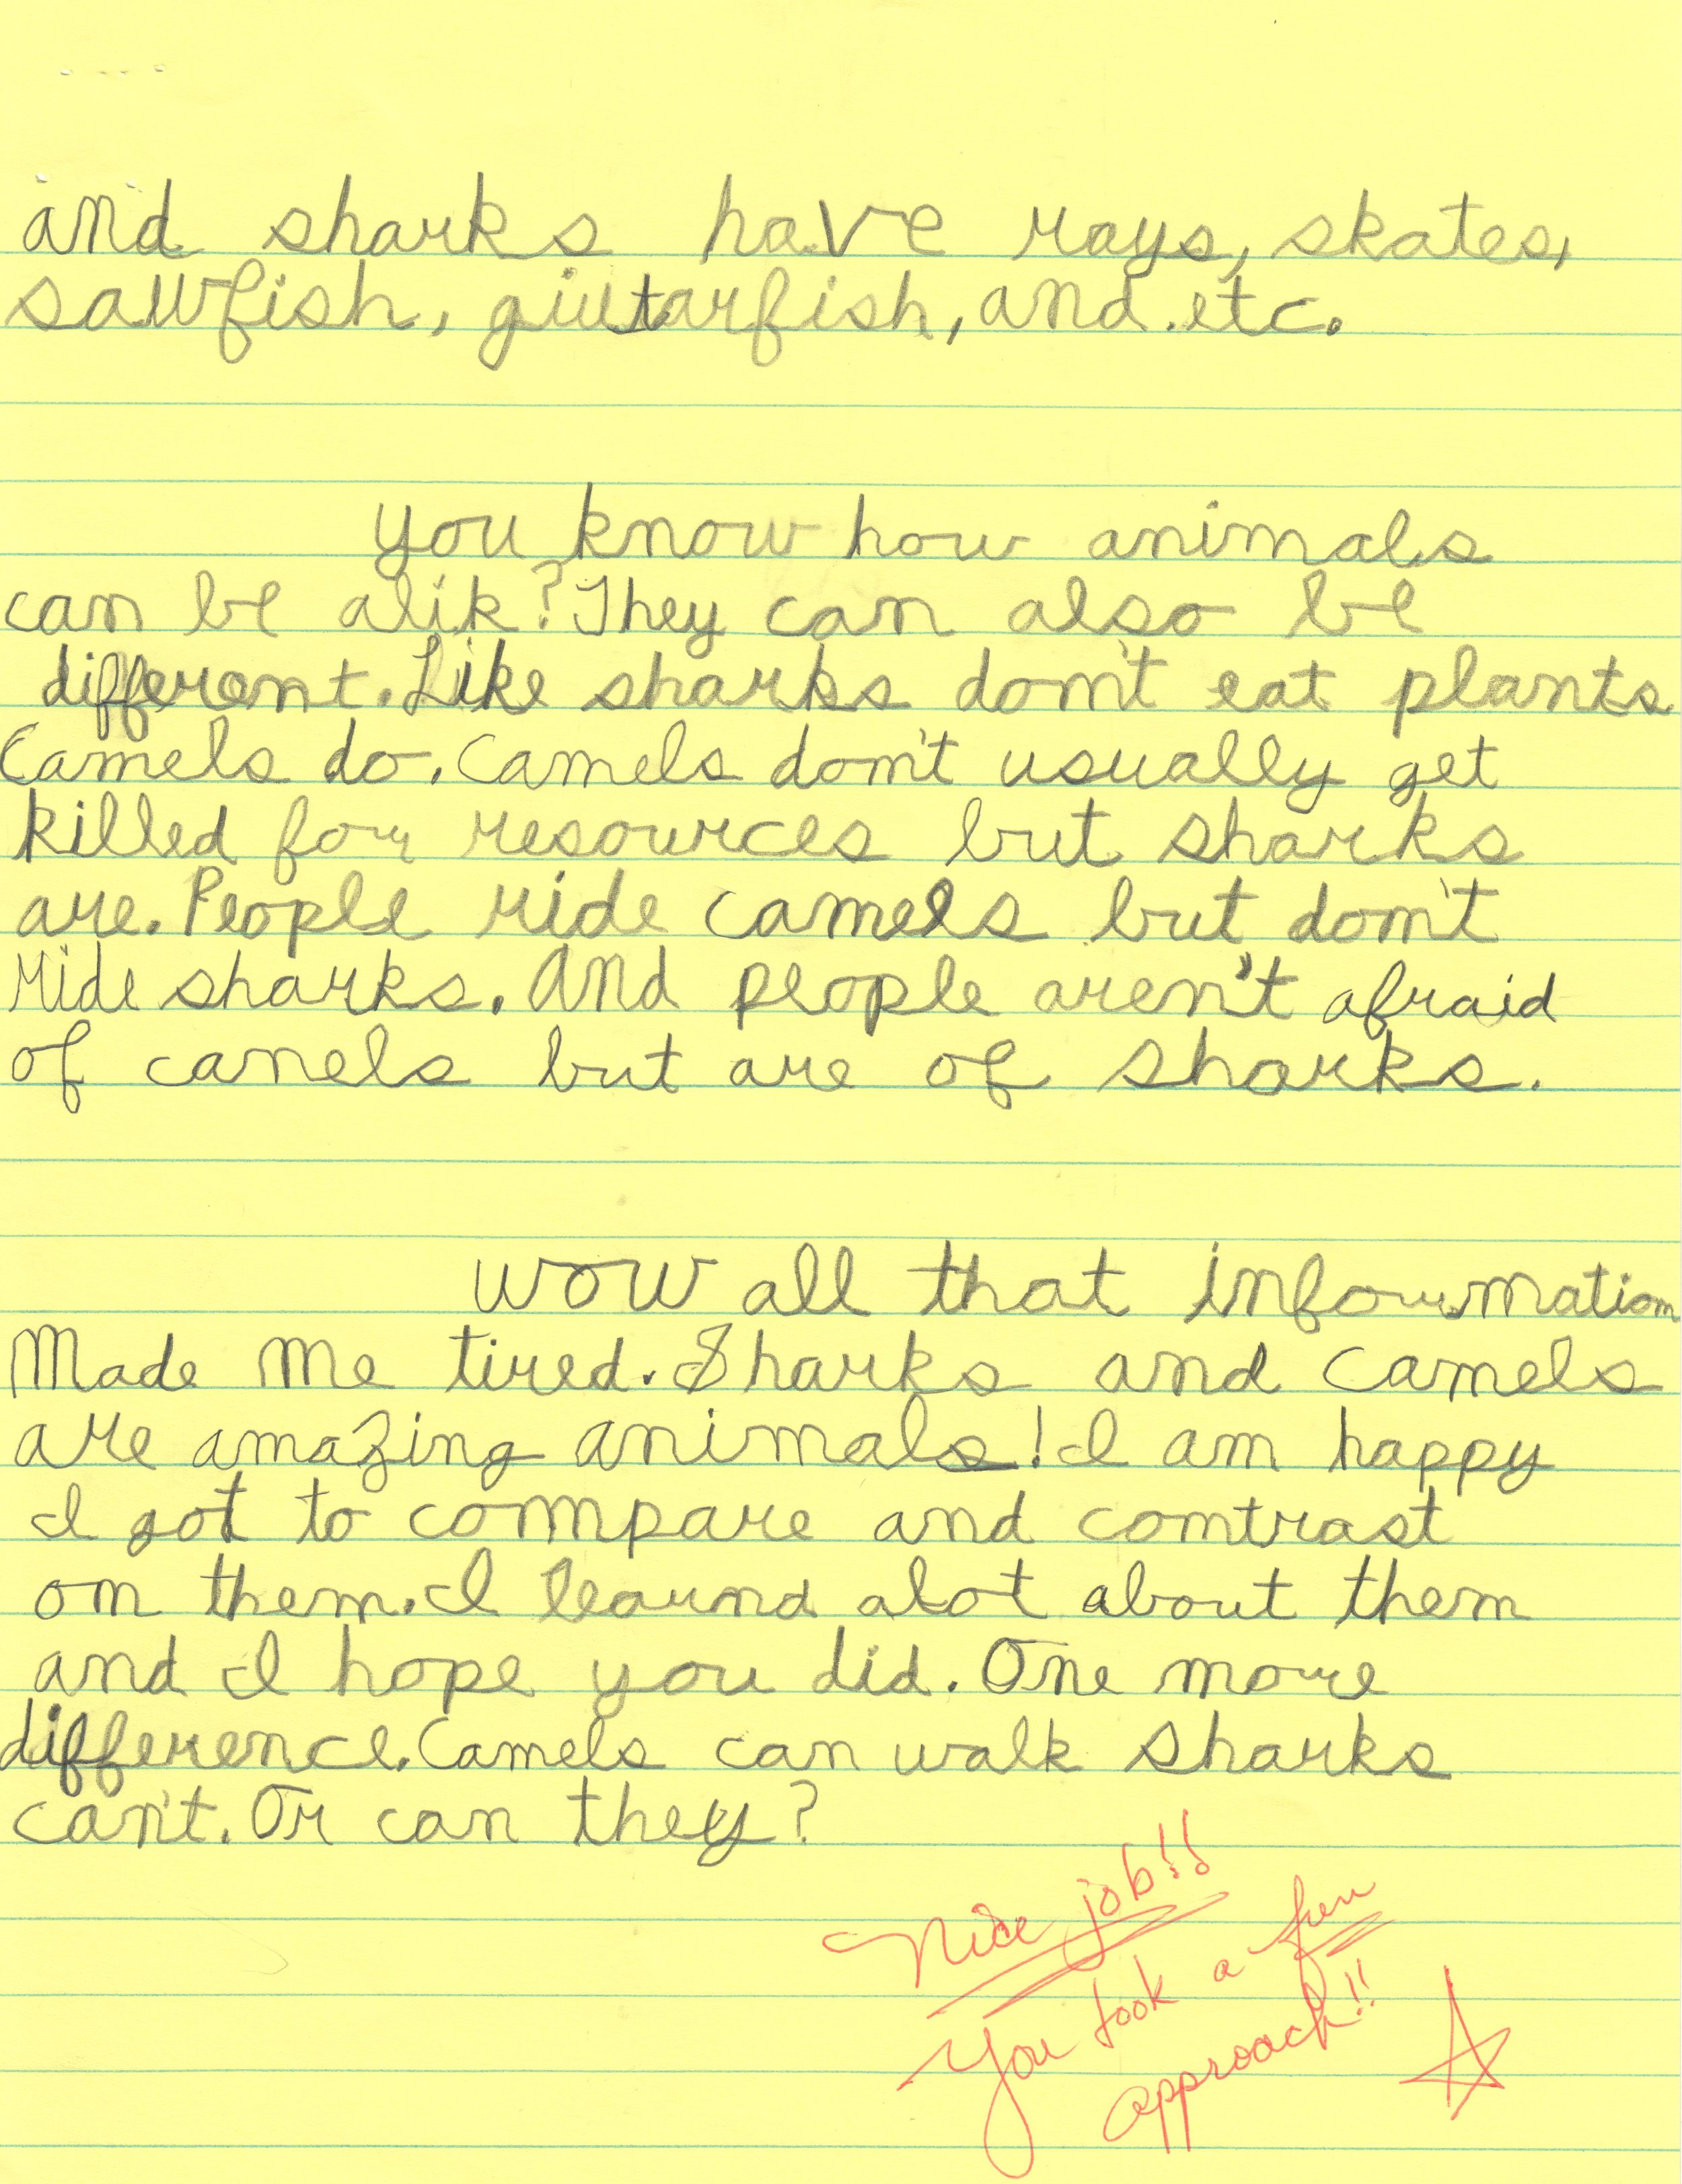 and sharks have rays, skates,
sawfish, giutarfish, and. etc.
you know how animals
can be alik? They can also be
different. Like sharks don't eat plants
Camels do. Camels don't usually get
killed for resources but sharks
are. People ride camels but don't
ride sharks. And people aren't afraid
of canels but are of sharks.
wow all that information
Made me tired. Sharks and camels
are amazing animals! I am happy
I got to compare and comtrast
on them. I learnd alot about them
and I hope you did. One more
difference. Camels can walk sharks
can't. Or can they?
Nice job!!
You took a fun
approach!!